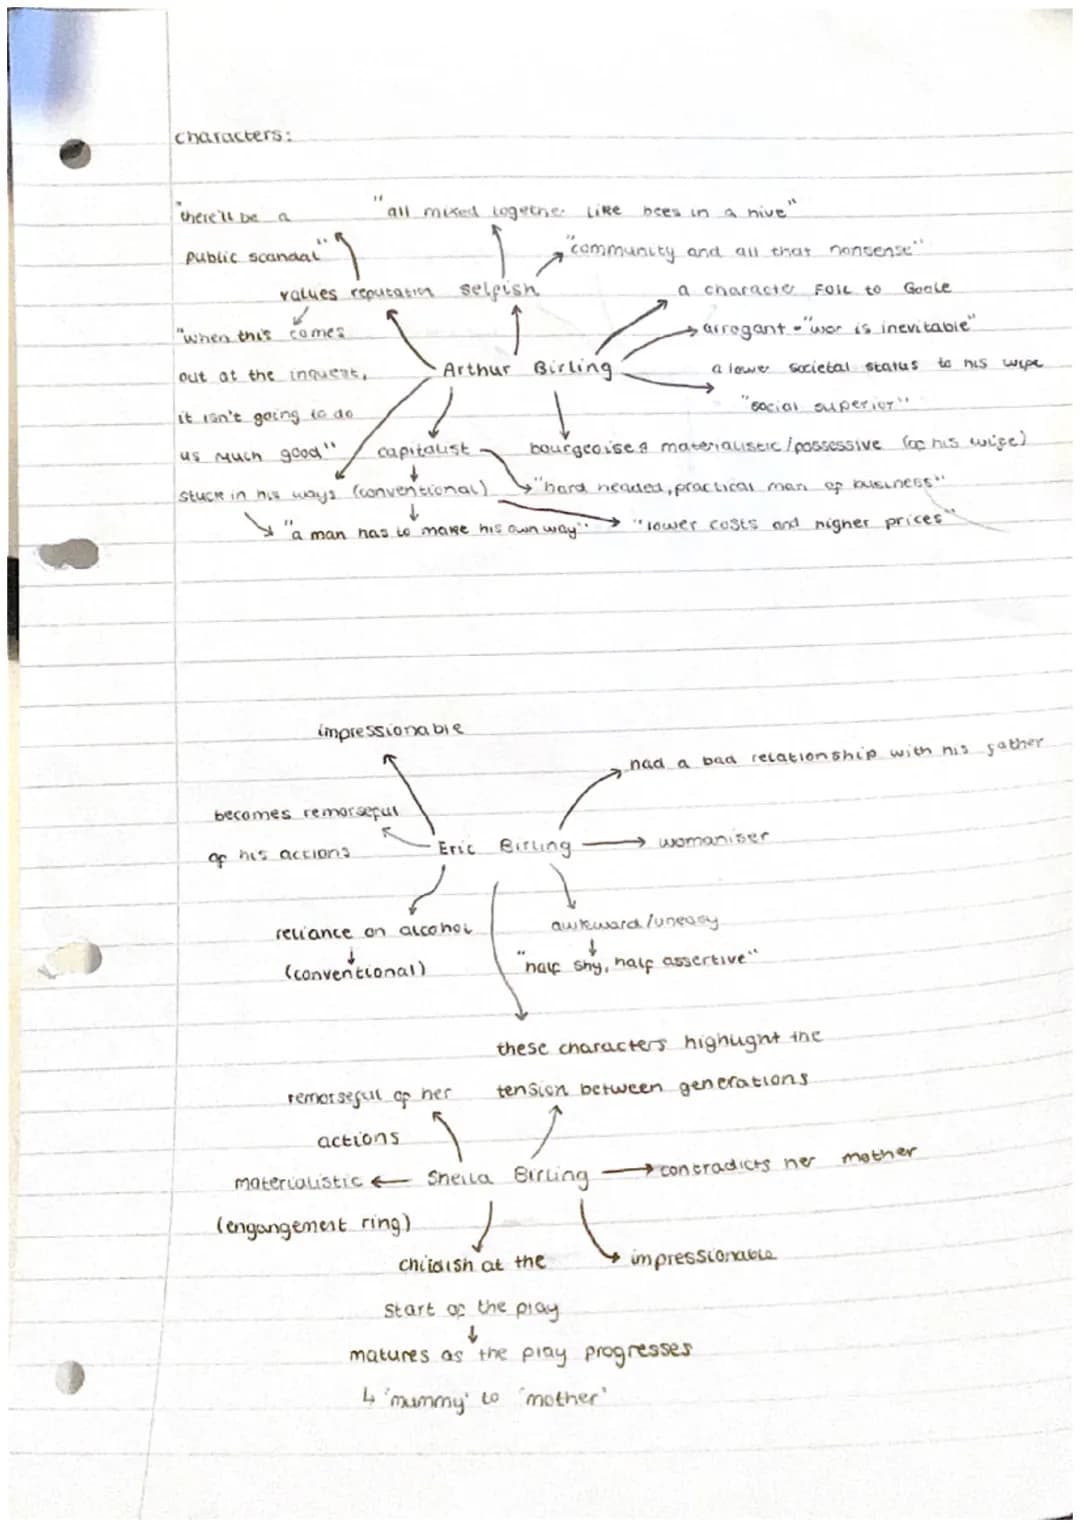 characters:
"there'll be a
"all mixed together like bees in a hive"
public scandal"
"community and all that nonsense"
values reputation
selfish
a character FOIL to Goole
"when this comes
arrogant - "war is inevitable"
out at the inquest,
Arthur Birling
a lower societal status to his wife
it isn't going to do
"social superior"
us much good"
capitalist
bourgeoise & materialistic/possessive (of his wife)
stuck in his ways (conventional)
"hard headed, practical man of business"
"a man has to make his own way"
"lower costs and higher prices"
impressionable
had a bad relationship with his father
becomes remorseful
of his actions
Eric Birling
womaniser
reliance on alcohol
awkward/uneasy
(conventional)
"half shy, half assertive"
these characters highlight the
remorseful of her
tension between generations
actions
materialistic
Sheila Birling
contradicts her mother
(engangement ring)
childish at the
impressionable
start of the play
matures as the play progresses
'mummy' to 'mother'